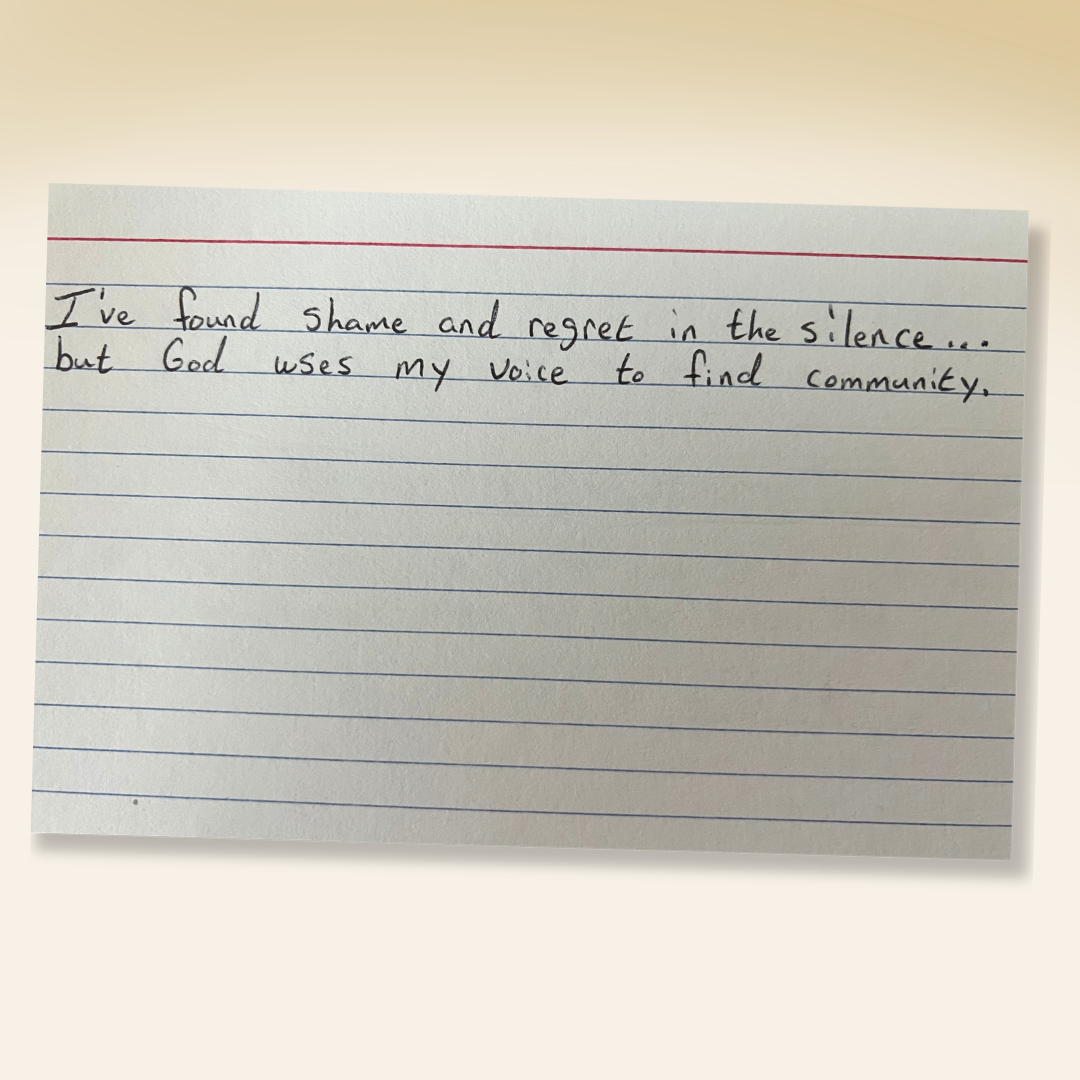 I've found shame and regret in the silence...
but God uses my voice to find community.